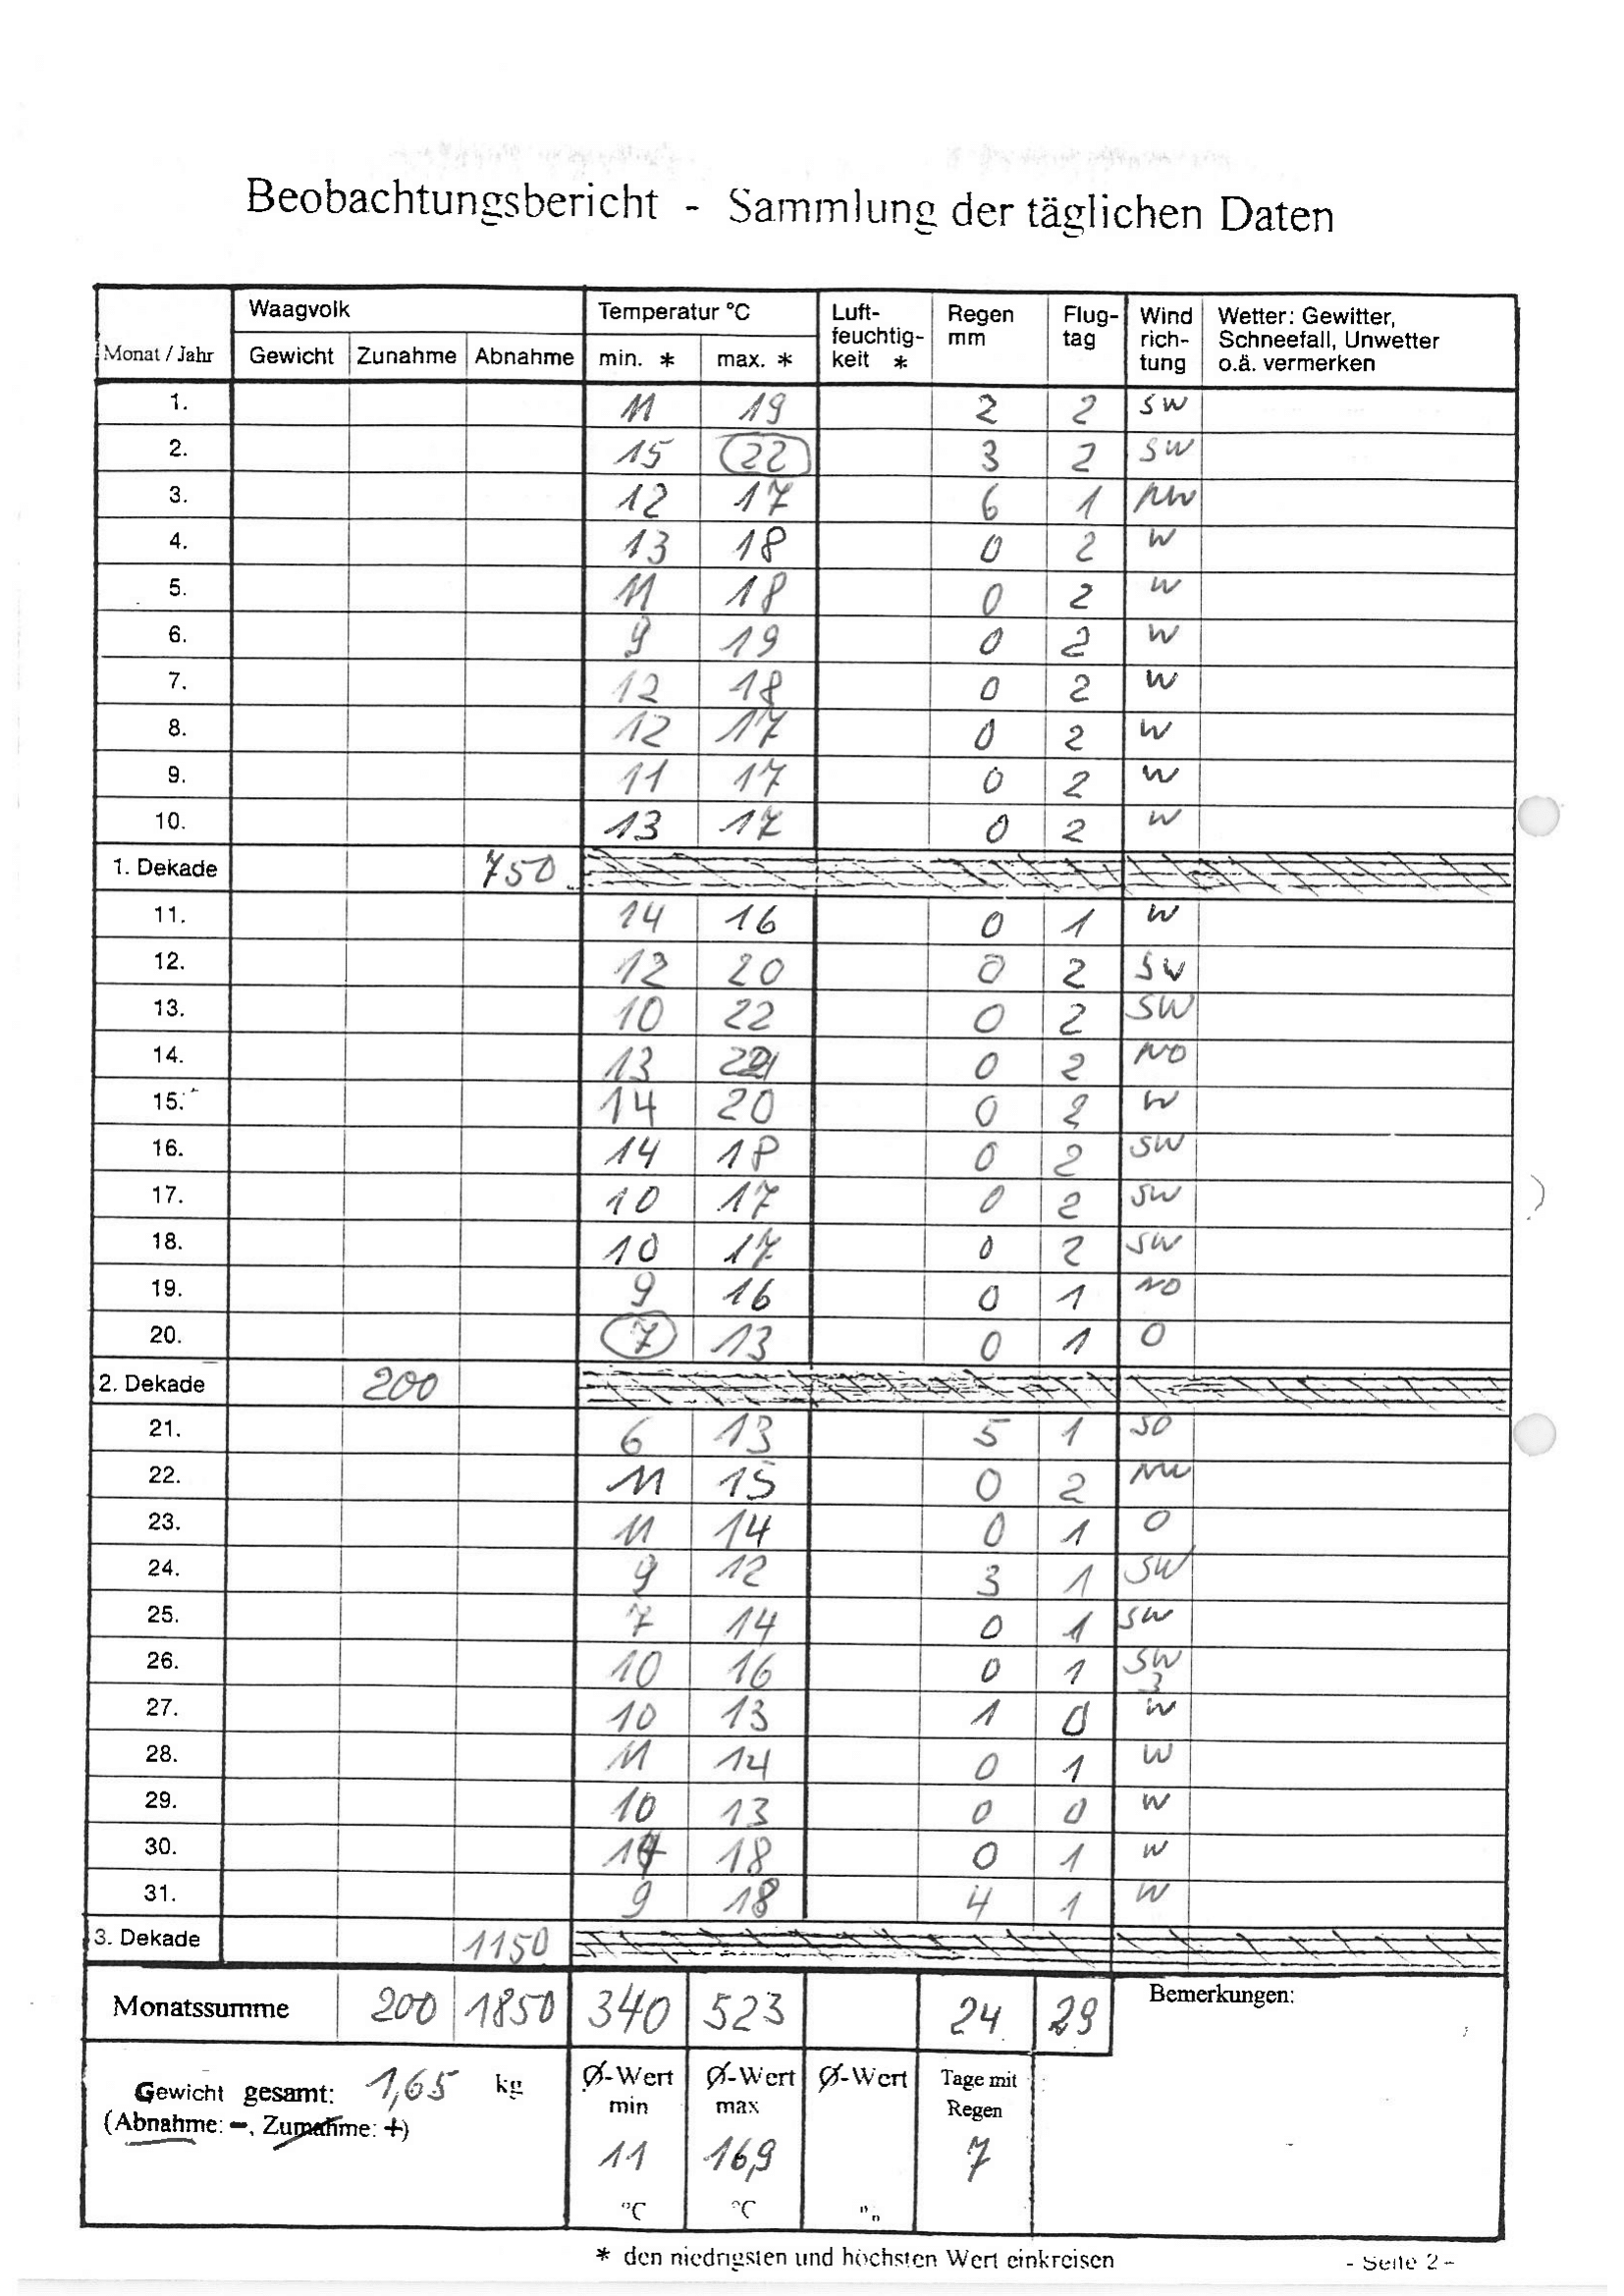 Beobachtungsbericht - Sammlung der täglichen Daten
Monat / Jahr Waagvolk Temperatur °C Luft-feuchtig-keit * Regen mm Flug-tag Wind rich-tung Wetter: Gewitter, Schneefall, Unwetter o.ä. vermerken
Gewicht Zunahme Abnahme min. * max. *
1. 11 19 2 2 SW
2. 15 22 3 2 SW
3. 12 17 6 1 NW
4. 13 18 0 2 W
5. 11 18 0 2 W
6. 9 19 0 2 W
7. 12 18 0 2 W
8. 12 17 0 2 W
9. 11 17 0 2 W
10. 13 17 0 2 W
1. Dekade 750
11. 14 16 0 1 W
12. 12 20 0 2 SW
13. 10 22 0 2 SW
14. 13 0 2 NO
15. 14 20 0 2 W
16. 14 18 0 2 SW
17. 10 17 0 2 SW
18. 10 17 0 2 SW
19. 9 16 0 1 NO
20. 7 13 0 1 O
2. Dekade 200
21. 6 13 5 1 SO
22. 11 15 0 2 NW
23. 11 14 0 1 O
24. 9 12 3 1 SW
25. 7 14 0 1 SW
26. 10 16 0 1 SW 3
27. 10 13 1 0 W
28. 11 14 0 1 W
29. 10 13 0 0 W
30. 18 0 1 W
31. 9 18 4 1 W
3. Dekade 1150
Monatssumme 200 1850 340 523 24 29 Bemerkungen:
Gewicht gesamt: 1,65 kg Ø-Wert min Ø-Wert max Ø-Wert Tage mit Regen
(Abnahme: -, Zunahme: +)
11 16,9 7
°C °C
* den niedrigsten und höchsten Wert einkreisen - Seite 2 -